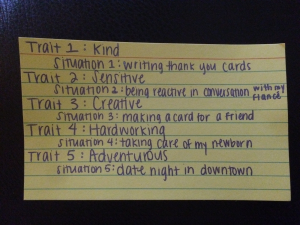 Trait 1: Kind
Situation 1: writing thank you cards
Trait 2: Sensitive
Situation 2: being reactive in conversation with my fiance
Trait 3: Creative
Situation 3: making a card for a friend
Trait 4: Hardworking
Situation 4: taking care of my newborn
Trait 5: Adventurous
Situation 5: date night in downtown